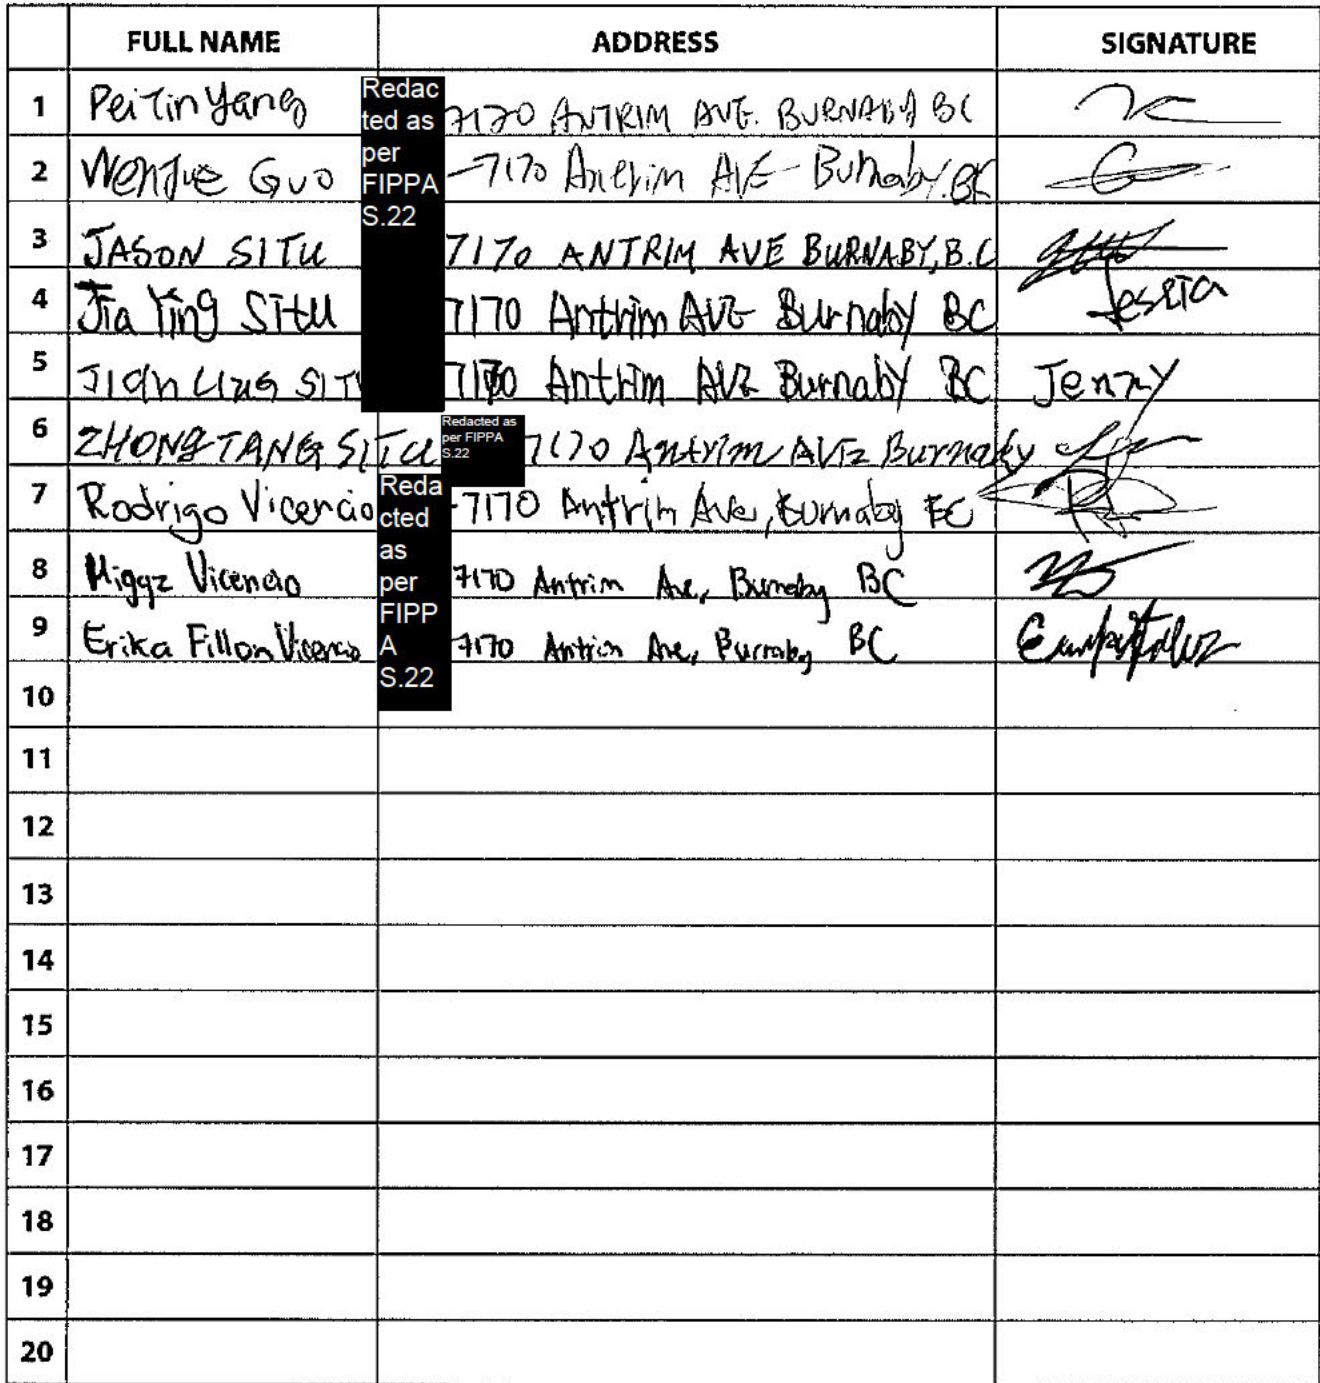 FULL NAME ADDRESS SIGNATURE
1 Pei Tin Yang Redac ted as per FIPPA S.22 7170 ANTRIM AVE. BURNABY BC
2 Guo -7170 Antrim AVE Burnaby.BC
3 JASON SITU 7170 ANTRIM AVE BURNABY, B.C
4 Jia Ying SITU 7170 Antrim AVE Burnaby BC
5 SITU 7170 Antrim AVE Burnaby BC Jenny
6 ZHONG TANG SITU Redacted as per FIPPA S.22 7170 Antrim AVE Burnaby
7 Rodrigo Vicencio Reda cted as per FIPP A S.22 -7170 Antrim Ave, Burnaby BC
8 Miggz Vicencio 7170 Antrim Ave, Burnaby BC
9 Erika Fillon Vicencio 7170 Antrim Ave, Burnaby BC
10
11
12
13
14
15
16
17
18
19
20